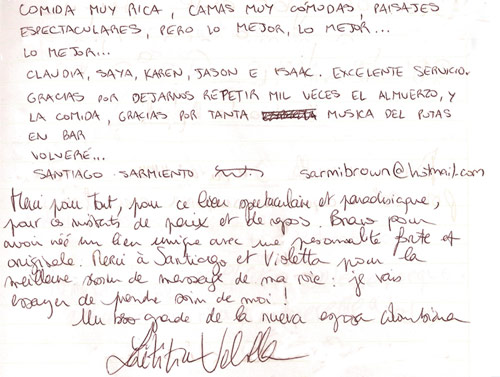 COMIDA MUY RICA, CAMAS MUY COMODAS, PAISAJES
ESPECTACULARES, PERO LO MEJOR, LO MEJOR...
LO MEJOR...
CLAUDIA, SAYA, KAREN, JASON E ISAAC. EXCELENTE SERVICIO.
GRACIAS POR DEJARNOS REPETIR MIL VECES EL ALMUERZO, Y
LA COMIDA, GRACIAS POR TANTA MUSICA DEL PUTAS
EN BAR
VOLVERÉ...
SANTIAGO SARMIENTO sarmibrown@hotmail.com
Merci pour tout, pour ce lieu spectaculaire et paradisiaque,
pour ces instants de paix et de repos. Bravo pour
avoir créé un lieu unique avec une personnalité forte et
originale. Merci à Santiago et Violetta pour la
meilleure de massage de ma vie: je vais
essayer de prendre soin de moi!
Un grade de la nueva colombiana
Laëtitia